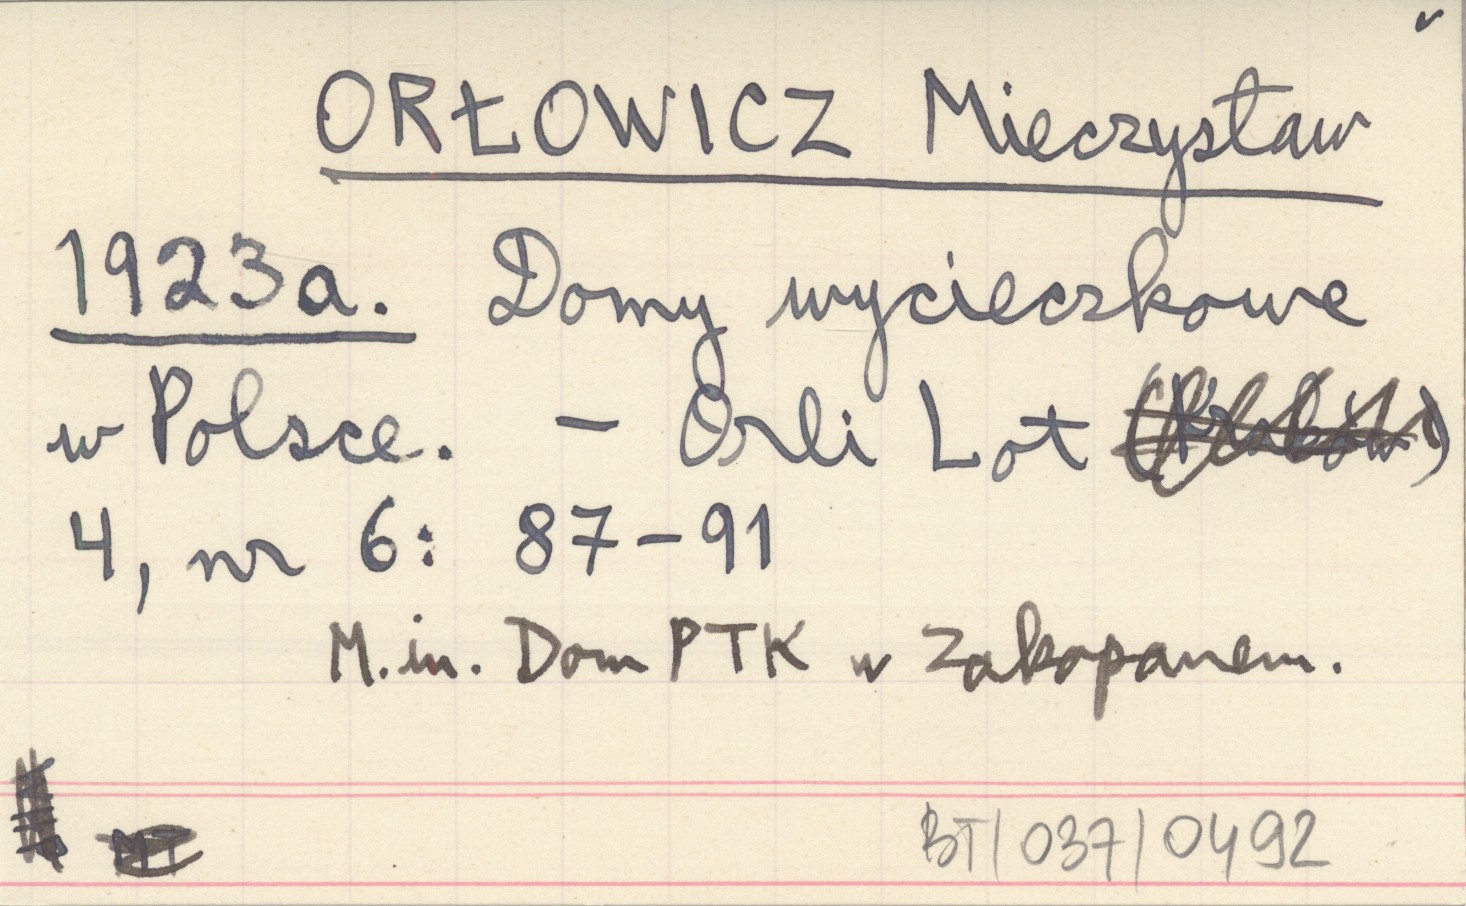 ORŁOWICZ Mieczysław
1923a. Domy wycieczkowe
w Polsce. – Orli Lot (Kraków)
4, nr 6: 87–91
M.in. Dom PTK w Zakopanem.
MT
BT/037/0492